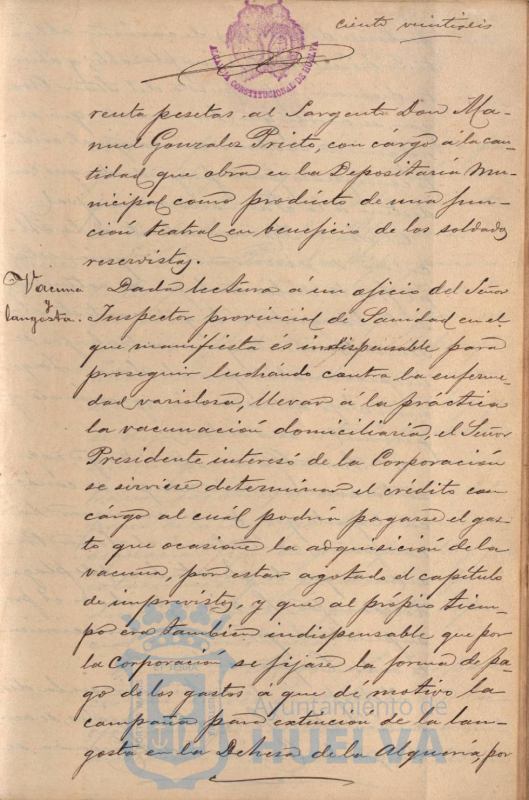 ciento veintiseis
ALCALDIA CONSTITUCIONAL DE HUELVA
renta pesetas al Sargento Don Ma-
nuel Gonzalez Prieto, con cárgo á la can-
tidad que obra en la Depositaría Mu-
nicipal como producto de una fun-
ción teatral en beneficio de los soldados
reservistas.
Vacuna
y
langosta.
Dada lectura á un oficio del Señor
Inspector provincial de Sanidad en el
que manifiesta és indispensable para
proseguir luchando contra la enferme-
dad variolosa, llevar á la práctica
la vacunación domiciliaria, el Señor
Presidente interesó de la Corporación
se sirviese determinar el crédito con
cárgo al cuál podría pagarse el gas-
to que ocasione la adquisición de la
vacuna, por estar agotado el capítulo
de imprevistos, y que al própio tiem-
po era tambien indispensable que por
la Corporación se fijase la forma de pa-
go de los gastos á que dé motivo la
campaña para extinción de la lan-
gosta en la Dehesa de la Alquería, por
Ayuntamiento de
HUELVA